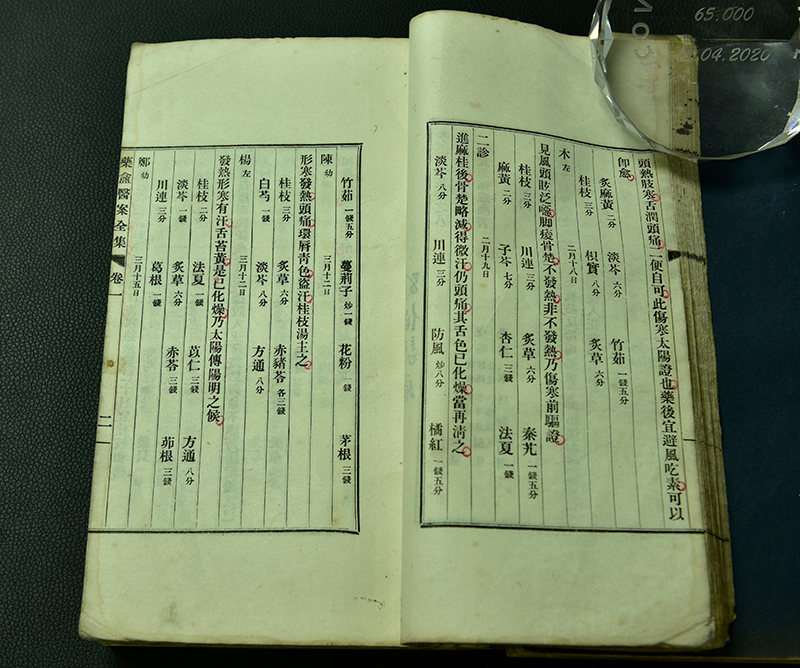 頭熱肢寒舌潤頭痛一便自可此傷寒太陽證也藥後宜避風吃素可以
卽愈
炙麻黃 二分 淡芩 六分 竹茹 一錢五分
桂枝 三分 枳實 八分 炙草 六分
木 左 二月十八日
見風頭眩泛噁脚痠骨楚不發熱非不發熱乃傷寒前驅證
桂枝 三分 川連 三分 炙草 六分 秦艽 一錢五分
麻黃 二分 子芩 七分 杏仁 三錢 法夏 一錢
二診 二月十九日
進麻桂後骨楚略減得微汗仍頭痛其舌色已化燥當再清之
淡芩 八分 川連 三分 防風 炒八分 橘紅 一錢五分
竹茹 一錢五分 蔓荊子 炒一錢 花粉 一錢 茅根 三錢
陳 幼 三月十二日
形寒發熱頭痛環唇青色盜汗桂枝湯主之
桂枝 三分 炙草 六分 赤豬苓 各三錢
白芍 一錢 淡芩 八分 方通 八分
楊 左 三月十二日
發熱形寒有汗舌苔黃是已化燥乃太陽傳陽明之候
桂枝 二分 法夏 一錢 苡仁 三錢 方通 八分
淡芩 一錢 炙草 六分 赤苓 三錢 茆根 三錢
川連 三分 葛根 一錢
鄭 幼 三月十五日
藥盦醫案全集 卷一 二
65.000
.04.2020